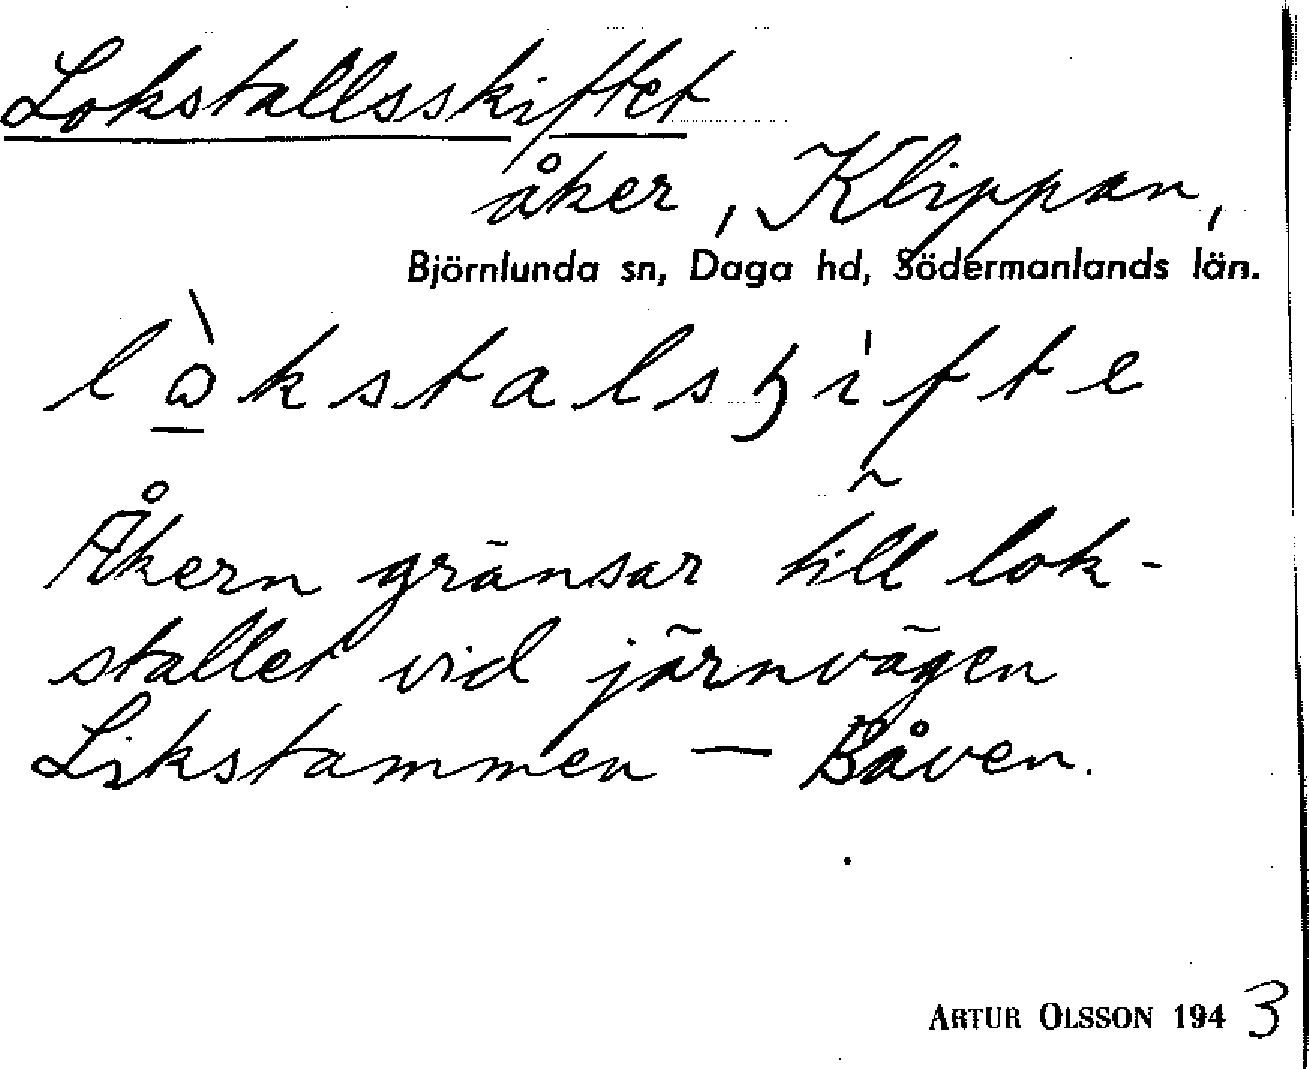 Lokstallsskiftet
åker, Klippan,
Björnlunda sn, Daga hd, Södermanlands län.
lòkstalsꜧífte
Åkern gränsar till lok-
stallet vid järnvägen
Likstammen — Båven.
ARTUR OLSSON 1943